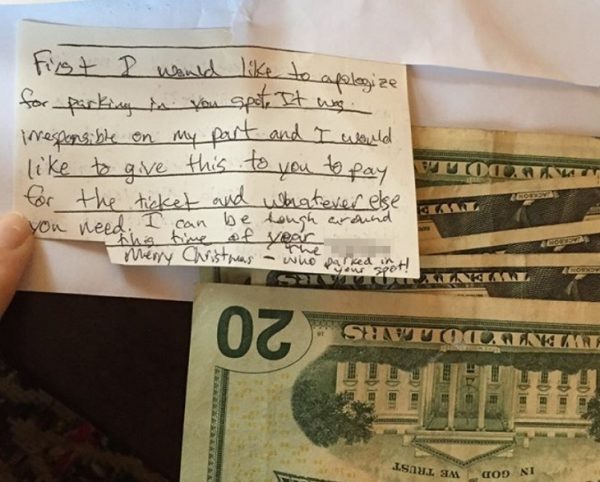 First I would like to apologize
for parking in you spot. It was
irresponsible on my part and I would
like to give this to you to pay
for the ticket and whatever else
you need. I can be tough around
this time of year.
Merry Christmas - The
who parked in
your spot!
TWENTY DOLLARS
JACKSON
TWENTY
JACKSON
TWENTY DOLLARS
20
TWENTY DOLLARS
IN GOD WE TRUST